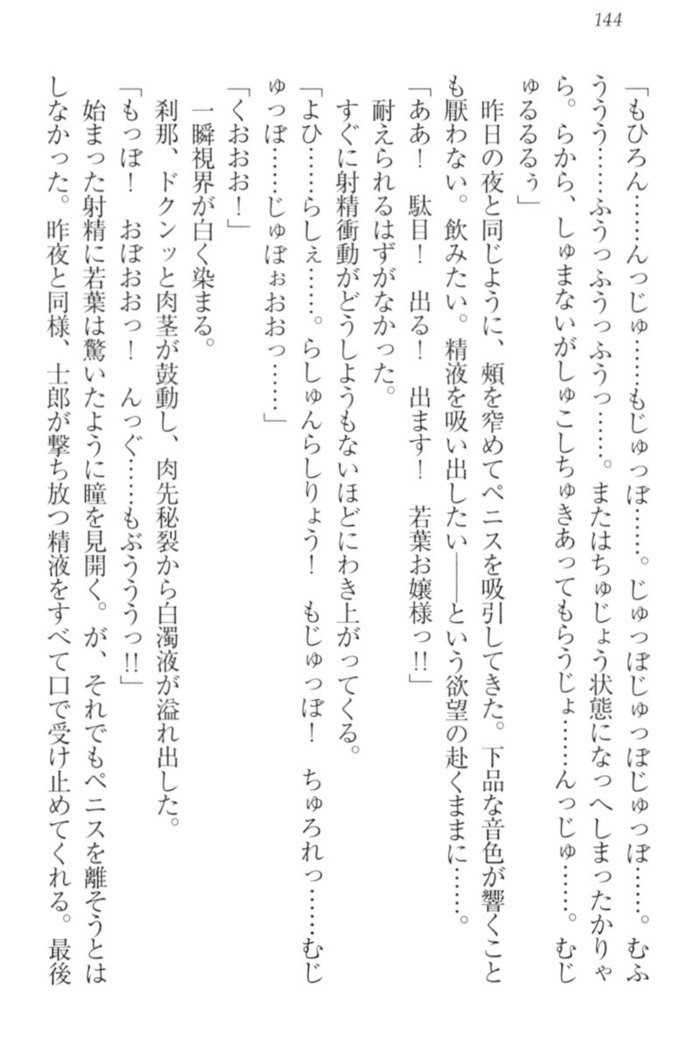 144
「もひろん……んっじゅ……もじゅっぽ……。じゅっぽじゅっぽじゅっぽ……。むふ
ううう……ふうっふうっふうっ……。またはちゅじょう状態になっへしまったかりゃ
ら。らから、しゅまないがしゅこしちゅきあってもらうじょ……んっじゅ……。むじ
ゅるるるぅ」
　昨日の夜と同じように、頰を窄めてペニスを吸引してきた。下品な音色が響くこと
も厭わない。飲みたい。精液を吸い出したい――という欲望の赴くままに……。
「ああ！　駄目！　出る！　出ます！　若葉お嬢様っ!!」
　耐えられるはずがなかった。
　すぐに射精衝動がどうしようもないほどにわき上がってくる。
「よひ……らしぇ……。らしゅんらしりょう！　もじゅっぽ！　ちゅろれっ……むじ
ゅっぽ……じゅぽぉおおっ……」
「くおおお！」
　一瞬視界が白く染まる。
　刹那、ドクンッと肉茎が鼓動し、肉先秘裂から白濁液が溢れ出した。
「もっぽ！　おぽおおっ！　んっぐ……もぶううっ!!」
　始まった射精に若葉は驚いたように瞳を見開く。が、それでもペニスを離そうとは
しなかった。昨夜と同様、士郎が撃ち放つ精液をすべて口で受け止めてくれる。最後